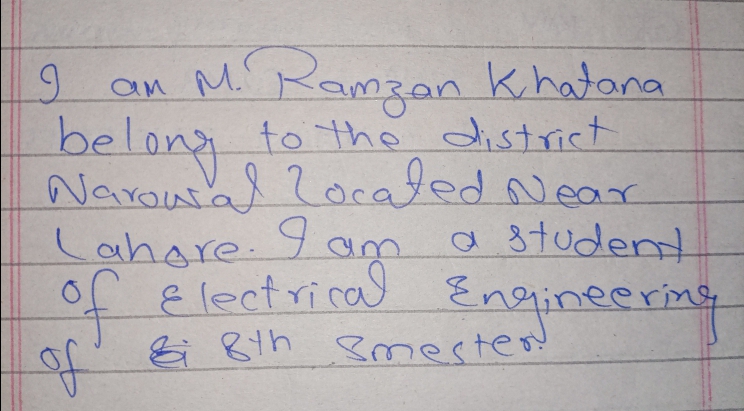 I am M. Ramzan Khatana
belong to the district
Narowal located Near
Lahore. I am a student
of Electrical Engineering
of 8th Smester.